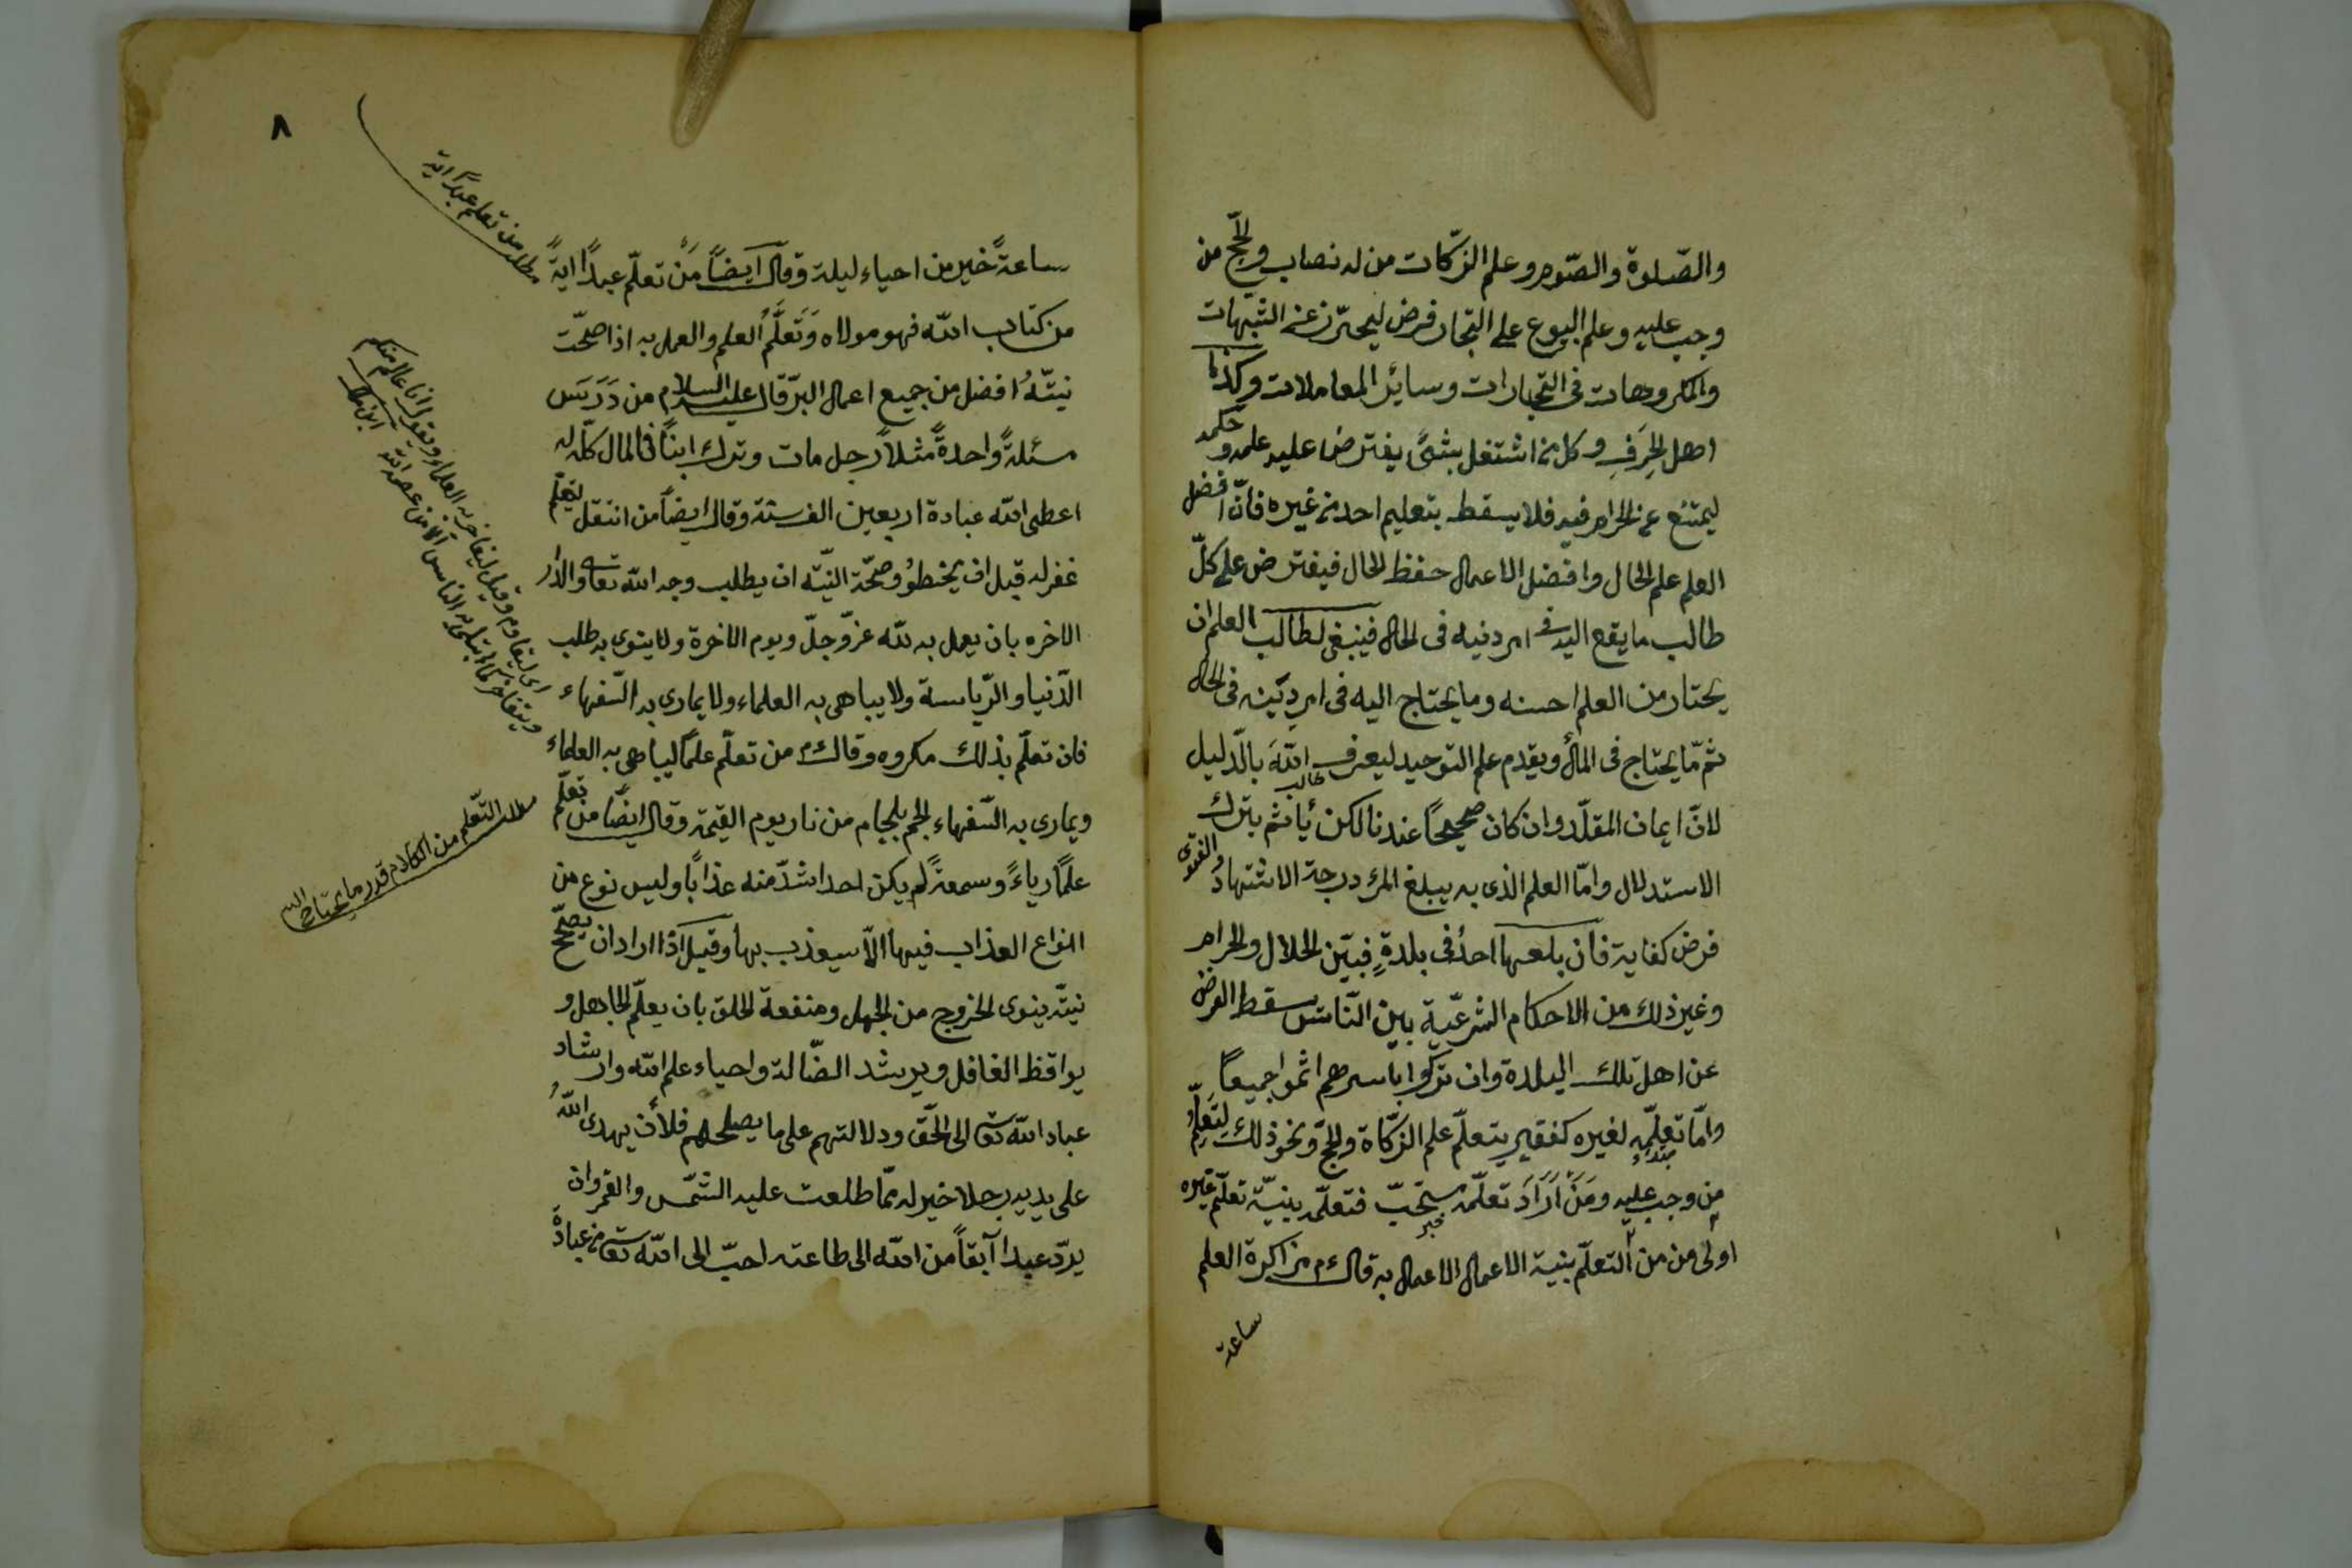 والصّلوة والصّوم وعلم الزكات من له نصاب والحجّ من
وجب عليه وعلم البيوع على التجار فرض ليحترز عن الشبهات
والمكروهات فى التجارات وسائر المعاملات وكذا
اهل الحِرَفِ وكل من اشتغل بشئ يفترض عليه علمه وحكمه
ليمتنع عن الحرام فيه فلا يسقط بتعليم احد من غيره فانّ افضل
العلم علم الحال وافضل الاعمال حفظ الحال فيفترض على كلّ
طالب ما يقع اليه فى امر دنيه فى الحال فينبغى لطالب العلم ان
يختار من العلم احسنه وما يحتاج اليه فى امر ديّنه فى الحال
ثم مّا يحتاج فى المال ويقدم علم التوحيد ليعرف الله بالدّليل
طالب
لانّ ايمان المقلّد وان كان صحيحاً عندنا لكن يأثم بترك
الاستدلال وامّا العلم الذى به يبلغ المرء درجة الاشتهاد والفتوى
فرض كفاية فان بلعها احدٌ فى بلدةٍ فبيّن الحلال والحرام
وغير ذلك من الاحكام الشرعيّة بين النّاس سقط الفرض
عن اهل تلك البلدة وان تركوا باسرهم اثموا جميعاً
وامّا تعلّمه لغيره كفقير يتعلّم علم الزكّاة والحجّ ونحو ذلك ليتعلّم
مبتداء
من وجب عليه ومَنْ اَرَادَ تعلّمه مستحبّ فتعلّمه بنيّة تعلّم غيره
خبر
اولى من من التعلّم بنية الاعمال الاعمال به قال ءم مزاكرة العلم
ساعة
٨
مطلب من تعلم عبدًا اية
ساعةً خير من احياء ليلة وقال ايضاً مَنْ تعلّم عبدًا ايةً
من كتاب الله فهو مولاه وَتَعَلُّمُ العلم والعمل به اذا صحّت
نيّتهُ افضل من جميع اعمال البرّ قال عليه السلام من دَرَسَ
مسئلةً واحدةً مثلاً رجل مات وترك ابناً فالمال كلّه له
اعطى الله عبادة اربعين الف سنة وقال ايضاً من انتقل ليتعلّم
غفر له قبل ان يخطوُ وصحّة النيّة ان يطلب وجه الله تعالى والدار
الاخره بان يعمل به لله عزّ وجلّ ويوم الاخرة ولا ينوى به طلب
الدّنيا والرّياسة ولا يباهى به العلماء ولا يمارى به السّفهاء
فان تعلّم بذلك مكروه وقال ءم من تعلّم علماً ليباهى به العلماء
ويمارى به السّفهاء الجم بلجام من نار يوم القيمة وقال ايضاً من تعلّم
علماً رياءً وسمعةً لم يكن احد اشدّ منه عذاباً وليس نوع من
انواع العذاب فيها الاّ سيعذب بها وقيل اذا اراد ان يصحّح
نيّته ينوى الخروج من الجهل ومنفعة الخلق بان يعلّم الجاهل و
يواقظ الغافل ويرشد الضّالة واحياء علم الله وارشاد
عباد الله تعالى الى الحّق ودلالتهم على ما يصلحهم فلأن يهدى اللهُ
على يديه رجلا خير له ممّا طلعت عليه الشمّس والقمر وان
يردّ عبدا آبقاً من الله الى طاعته احبّ الى الله تعالى من عبادة
اى ليقاوم وقيل ليفاخر به العلماء ويقول انا عالم منكم
ويتفاخر كما ابتلى به الناس الا من عصمه الله ابن ملك
مطلب التّعلّم من الكلام قدر ما يحتاج اليه